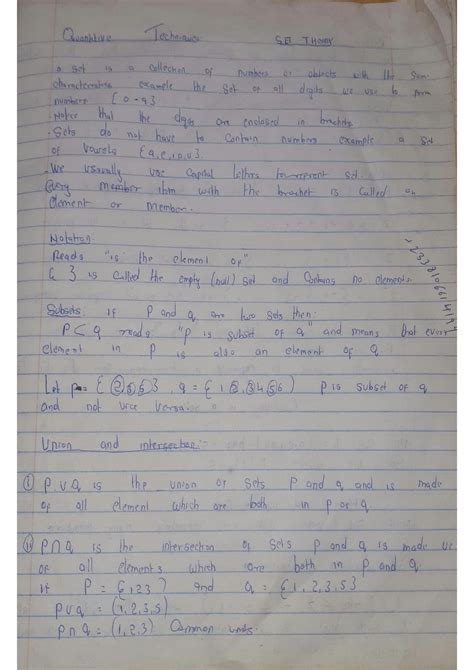 Quantitive Techniques SET THEORY
a set is a collection of numbers or objects with the same
characteristics example the set of all digits we use to form
numbers { 0 - 9 }
Notice that the digits are enclosed in brackets
Sets do not have to contain numbers example a set
of vowels {a, e, i, o, u}.
We usually use capital letters to represent set.
Every member item with the bracket is called an
element or member.
Notation:
Reads "is the element of"
{ } is called the empty (null) set and contains no elements.
Subsets: if P and q, are two sets then:
P ⊂ q reads "P is subset of q" and means that every
element in P is also an element of Q.
Let p = { 2, 5, 6 }, q = { 1 2, 3 4 5 6 ) P is subset of q
and not vice versa:
Union and intersection:-
i P ∪ q is the union of sets P and q and is made
of all element which are both in P or q
ii P ∩ q is the intersection of sets P and q is made
of all elements which are both in P and q
if P = {, 1 2 3 ) and q = { 1, 2, 3, 5 }
p ∪ q = (1, 2, 3, 5)
p ∩ q = (1, 2, 3) Common